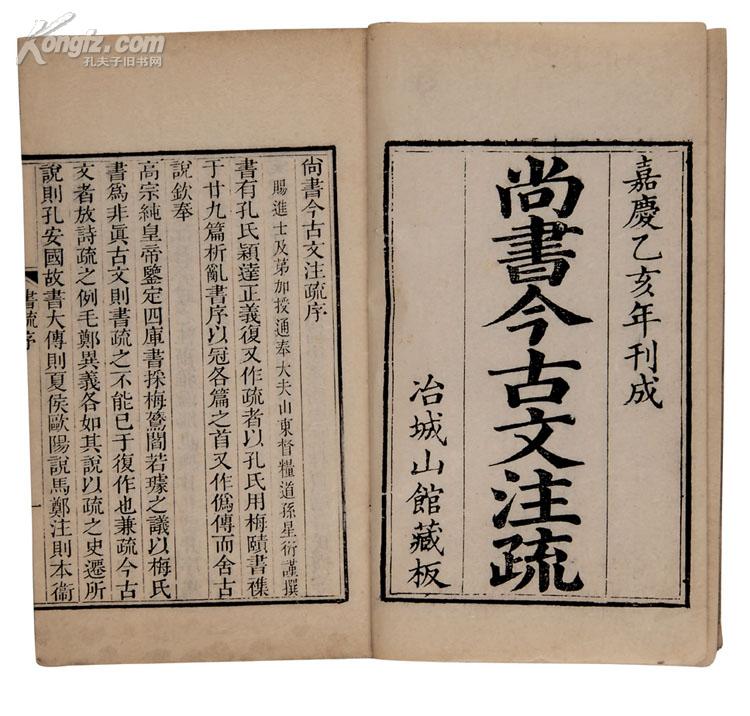 Kongfz.com
孔夫子旧书网
嘉慶乙亥年刊成
尚書今古文注疏
冶城山館藏板
尚書今古文注疏序
賜進士及第加授通奉大夫山東督糧道孫星衍謹撰
書有孔氏穎達正義復又作疏者以孔氏用梅賾書襍
于廿九篇析亂書序以冠各篇之首又作僞傳而舍古
說欽奉
高宗純皇帝鑒定四庫書採梅鷟閻若璩之議以梅氏
書爲非眞古文則書疏之不能已于復作也兼疏今古
文者放詩疏之例毛鄭異義各如其說以疏之史遷所
說則孔安國故書大傳則夏侯歐陽說馬鄭注則本衞
書疏序
一